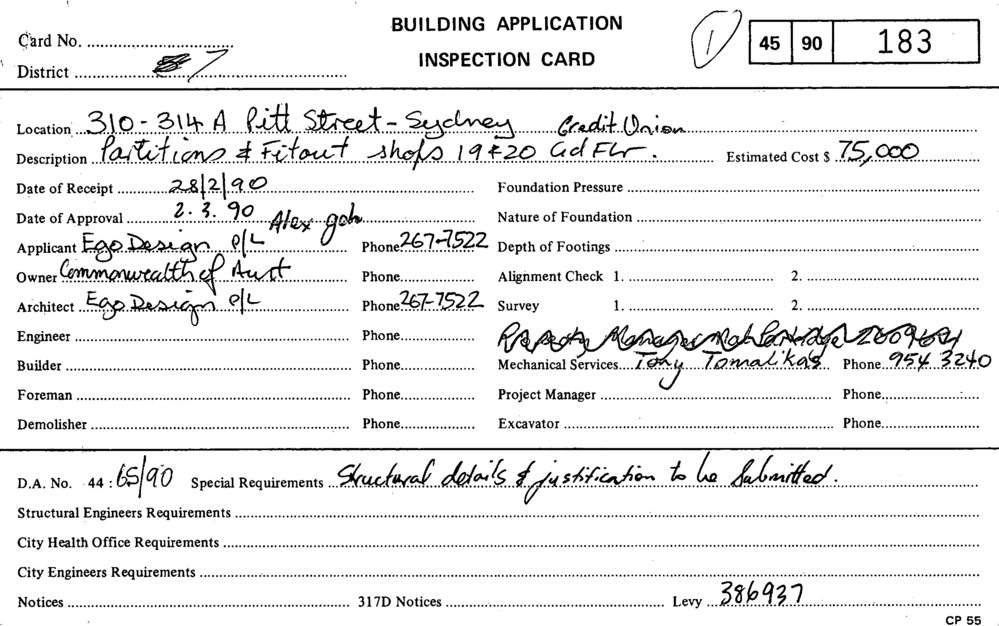 BUILDING APPLICATION
INSPECTION CARD
Card No.
District 7
1
45 90 183
Location 310-314 A Pitt Street - Sydney Credit Union
Description Partitions & Fitout shops 19 & 20 Gd Flr. Estimated Cost $ 75,000
Date of Receipt 28/2/90 Foundation Pressure
Date of Approval 2.3.90 Nature of Foundation
Alex goh
Applicant Ego Design P/L Phone 267-7522 Depth of Footings
Owner Commonwealth of Aust Phone Alignment Check 1. 2.
Architect Ego Design P/L Phone 267-7522 Survey 1. 2.
Engineer Phone Property Manager
Builder Phone Mechanical Services Tony Tomalikas Phone 954 3240
Foreman Phone Project Manager Phone
Demolisher Phone Excavator Phone
D.A. No. 44 : 65/90 Special Requirements Structural details & justification to be Submitted.
Structural Engineers Requirements
City Health Office Requirements
City Engineers Requirements
Notices 317D Notices Levy 386937
CP 55